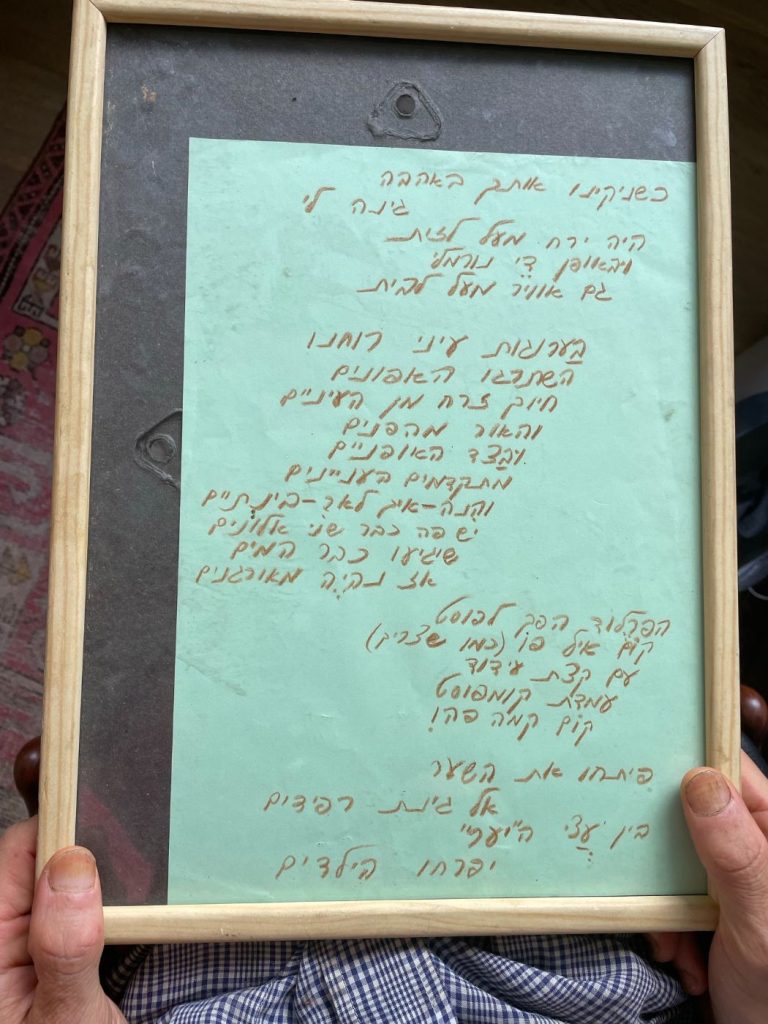 כשניקינו אותך באהבה
גינה לי
היה ירח מעל לזית
ובאופן די נורמלי
גם אוויר מעל לבית
בערוגות עיני רוחנו
השתרגו האפונים
חיוך זרח מן העיניים
והאור מהפנים
ובצד האופניים
מתקדמים העניינים
והנה-איך לאר-בינתיים
יש פה כבר שני אלונים
שיגיעו כבר המים
אז נהיה מאורגנים
הפרלוד הפך לפוסט
קום איל פו (כמו שצריך)
עם קצת עידוד
עמדת קומפוסט
קום קמה פה!
פיתחו את השער
אל גינת רפידים
בין עצי ה"יער"
יפרחו הילדים